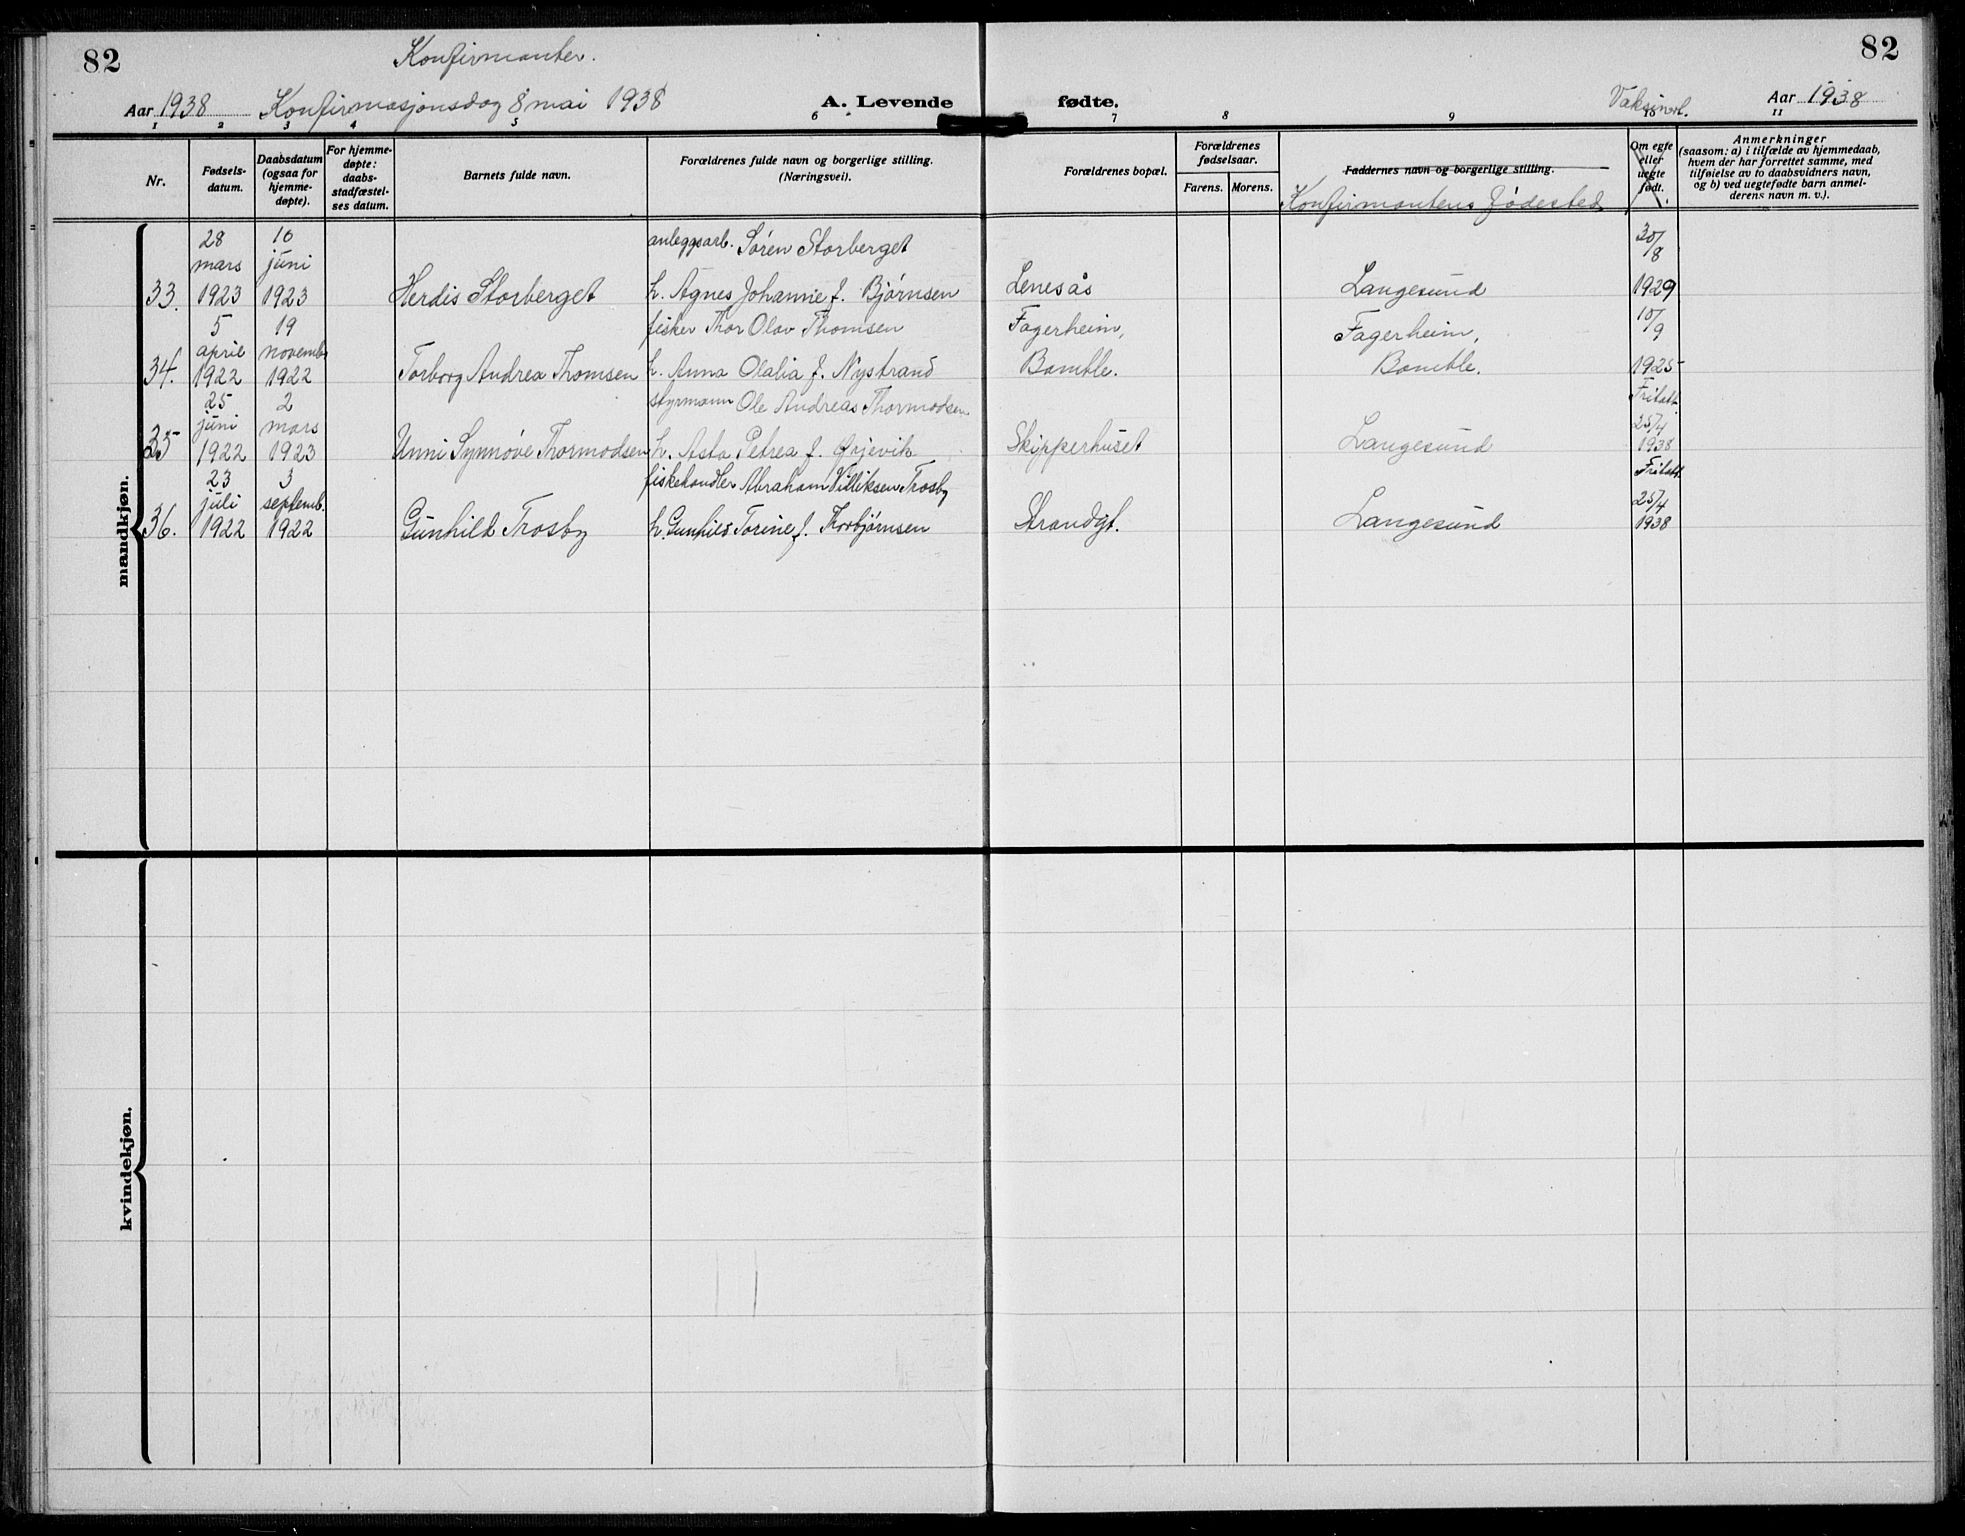 82
Konfirmanter.
82
Aar 1938 Konfirmasjonsdag 8 mai 1938 A. Levende fødte. Vaksinert. Aar 1938
1 2 3 4 5 6 7 8 9 10 11
Nr.
Fødsels-
datum.
Daabsdatum
(ogsaa for
hjemme-
døpte).
For hjemme-
døpte:
daabs-
stadfæstel-
ses datum.
Barnets fulde navn.
Forældrenes fulde navn og borgerlige stilling.
(Næringsvei).
Forældrenes bopæl.
Forældrenes
fødselsaar.
Farens. Morens.
Faddernes navn og borgerlige stilling.
Konfirmantens fødested
Om egte
eller
uegte
født.
Anmerkninger
(saasom: a) i tilfælde av hjemmedaab,
hvem der har forrettet samme, med
tilføielse av to daabsvidners navn,
og b) ved uegtefødte barn anmel-
derens navn m. v.).
mandkjøn.
28 10 anleggsarb. Søren Storberget 30/8
mars juni
33. 1923 1923 Herdis Storberget h. Agnes Johanne f. Bjørnsen Lenesås Langesund 1929
5 19 fisker Thor Olav Thomsen Fagerheim, Fagerheim, 10/9
april novemb.
34. 1922 1922 Torborg Andrea Thomsen h. Anna Olalia f. Nystrand Bamble. Bamble. 1925
25 2 styrmann Ole Andreas Thormodsen Fritatt.
juni mars 25/4
35 1922 1923 Unni Synnøve Thormodsen h. Asta Petrea f. Ørjevik Skipperhuset Langesund 1938
23 3 fiskehandler Abraham Trosby Fritatt.
juli septemb. 25/4
36. 1922 1922 Gunhild Trosby h. Gunhild Torine f. Thorbjørnsen Strandgt. Langesund 1938
kvindekjøn.